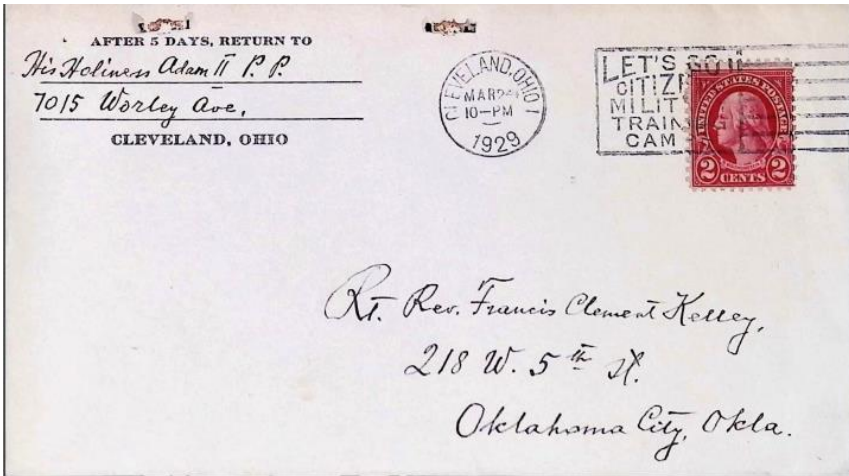 AFTER 5 DAYS, RETURN TO
His Holiness Adam II P. P.
7015 Worley Ave,
CLEVELAND, OHIO
CLEVELAND, OHIO 1
MAR 24
10-PM
1929
LET'S GO!
CITIZ
MILIT
TRAIN
CAM
UNITED STATES POSTAGE
2 CENTS 2
Rt. Rev. Francis Clement Kelley,
218 W. 5th St.
Oklahoma City, Okla.